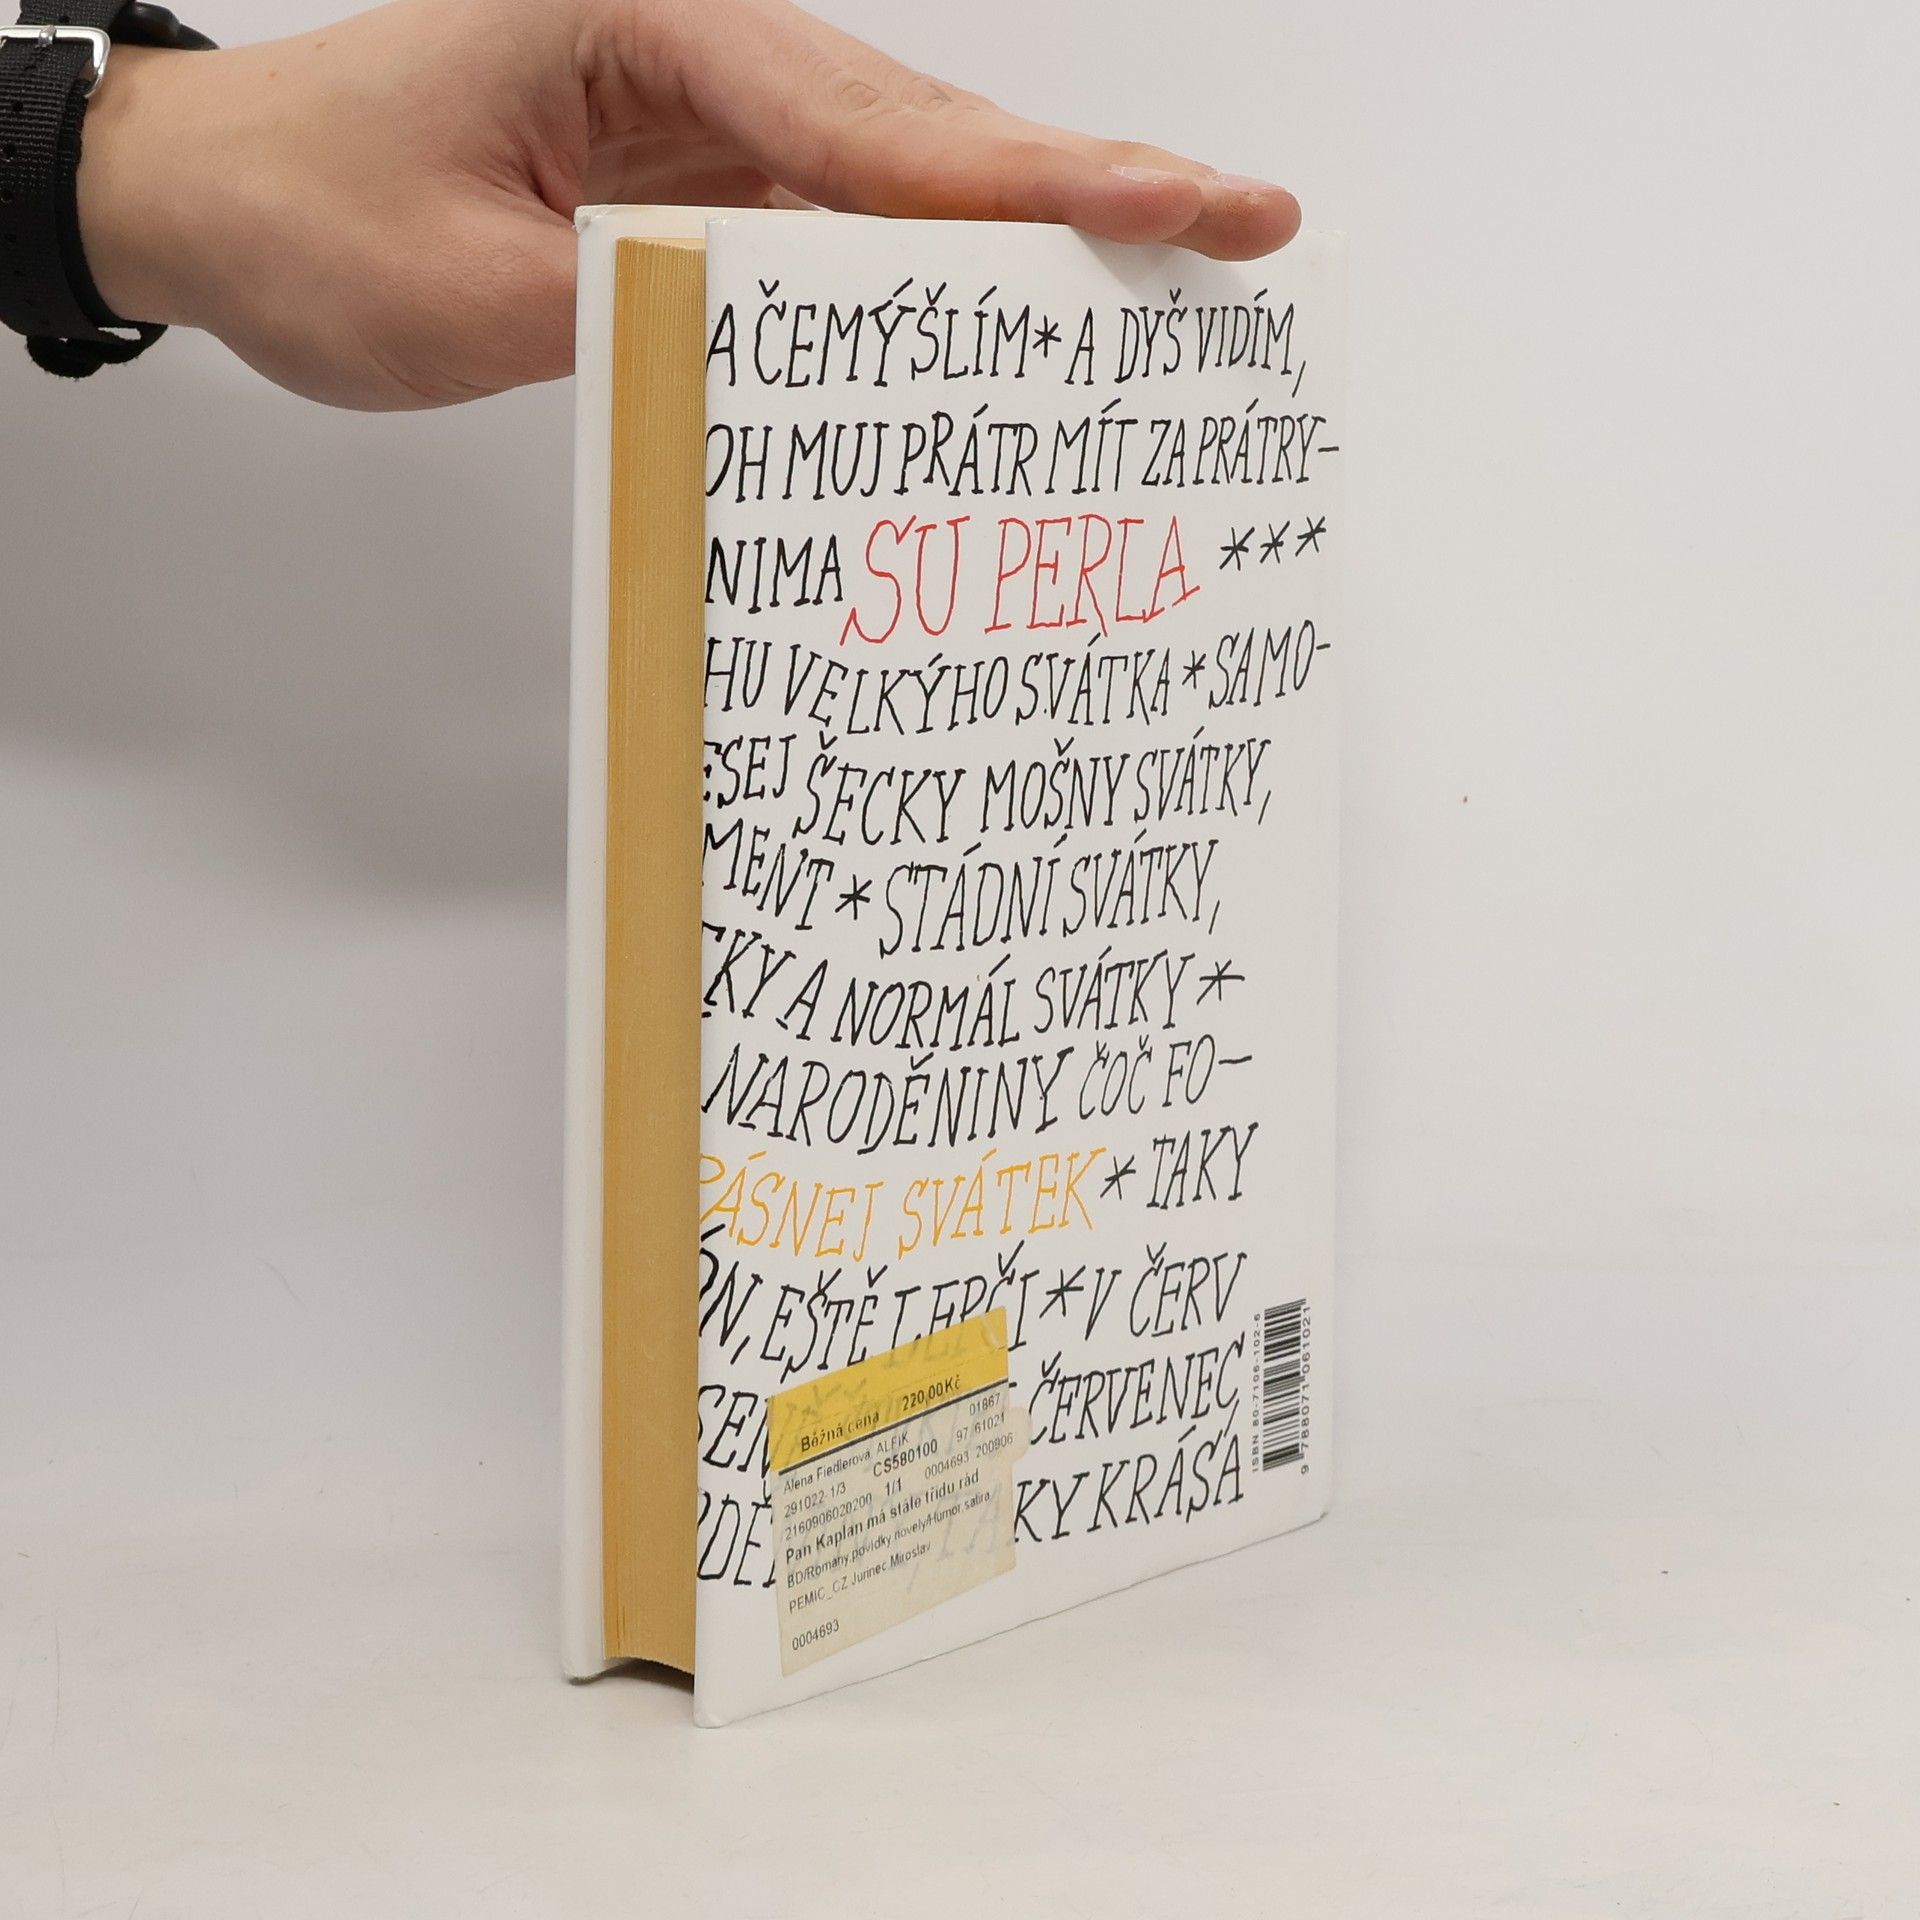 A ČEMÝŠLÍM * A DYŠ VIDÍM,
OH MUJ PRÁTR MÍT ZA PRÁTRY–
NIMA SU PERLA ***
HU VELKÝHO SVÁTKA * SAMO-
ESEJ ŠECKY MOŠNY SVÁTKY,
MENT * STÁDNÍ SVÁTKY,
TKY A NORMÁL SVÁTKY *
NARODĚNINY ČOČ FO–
PÁSNEJ SVÁTEK * TAKY
ÓN, EŠTĚ LEPČI * V ČERV
SEN ČERVENEC
DĚ KY KRÁSÁ
Běžná cena 220,00Kč
Alena Fiedlerová, ALFIK 01867
291022-1/3 CS580100 97 61021
2160906020200 1/1 0004693 200906
Pan Kaplan má stále třídu rád
BD/Romány,povídky,novely/Humor,satira
PEMIC_CZ Jurinec Miroslav
0004693
ISBN 80-7106-102-6
9 788071 061021